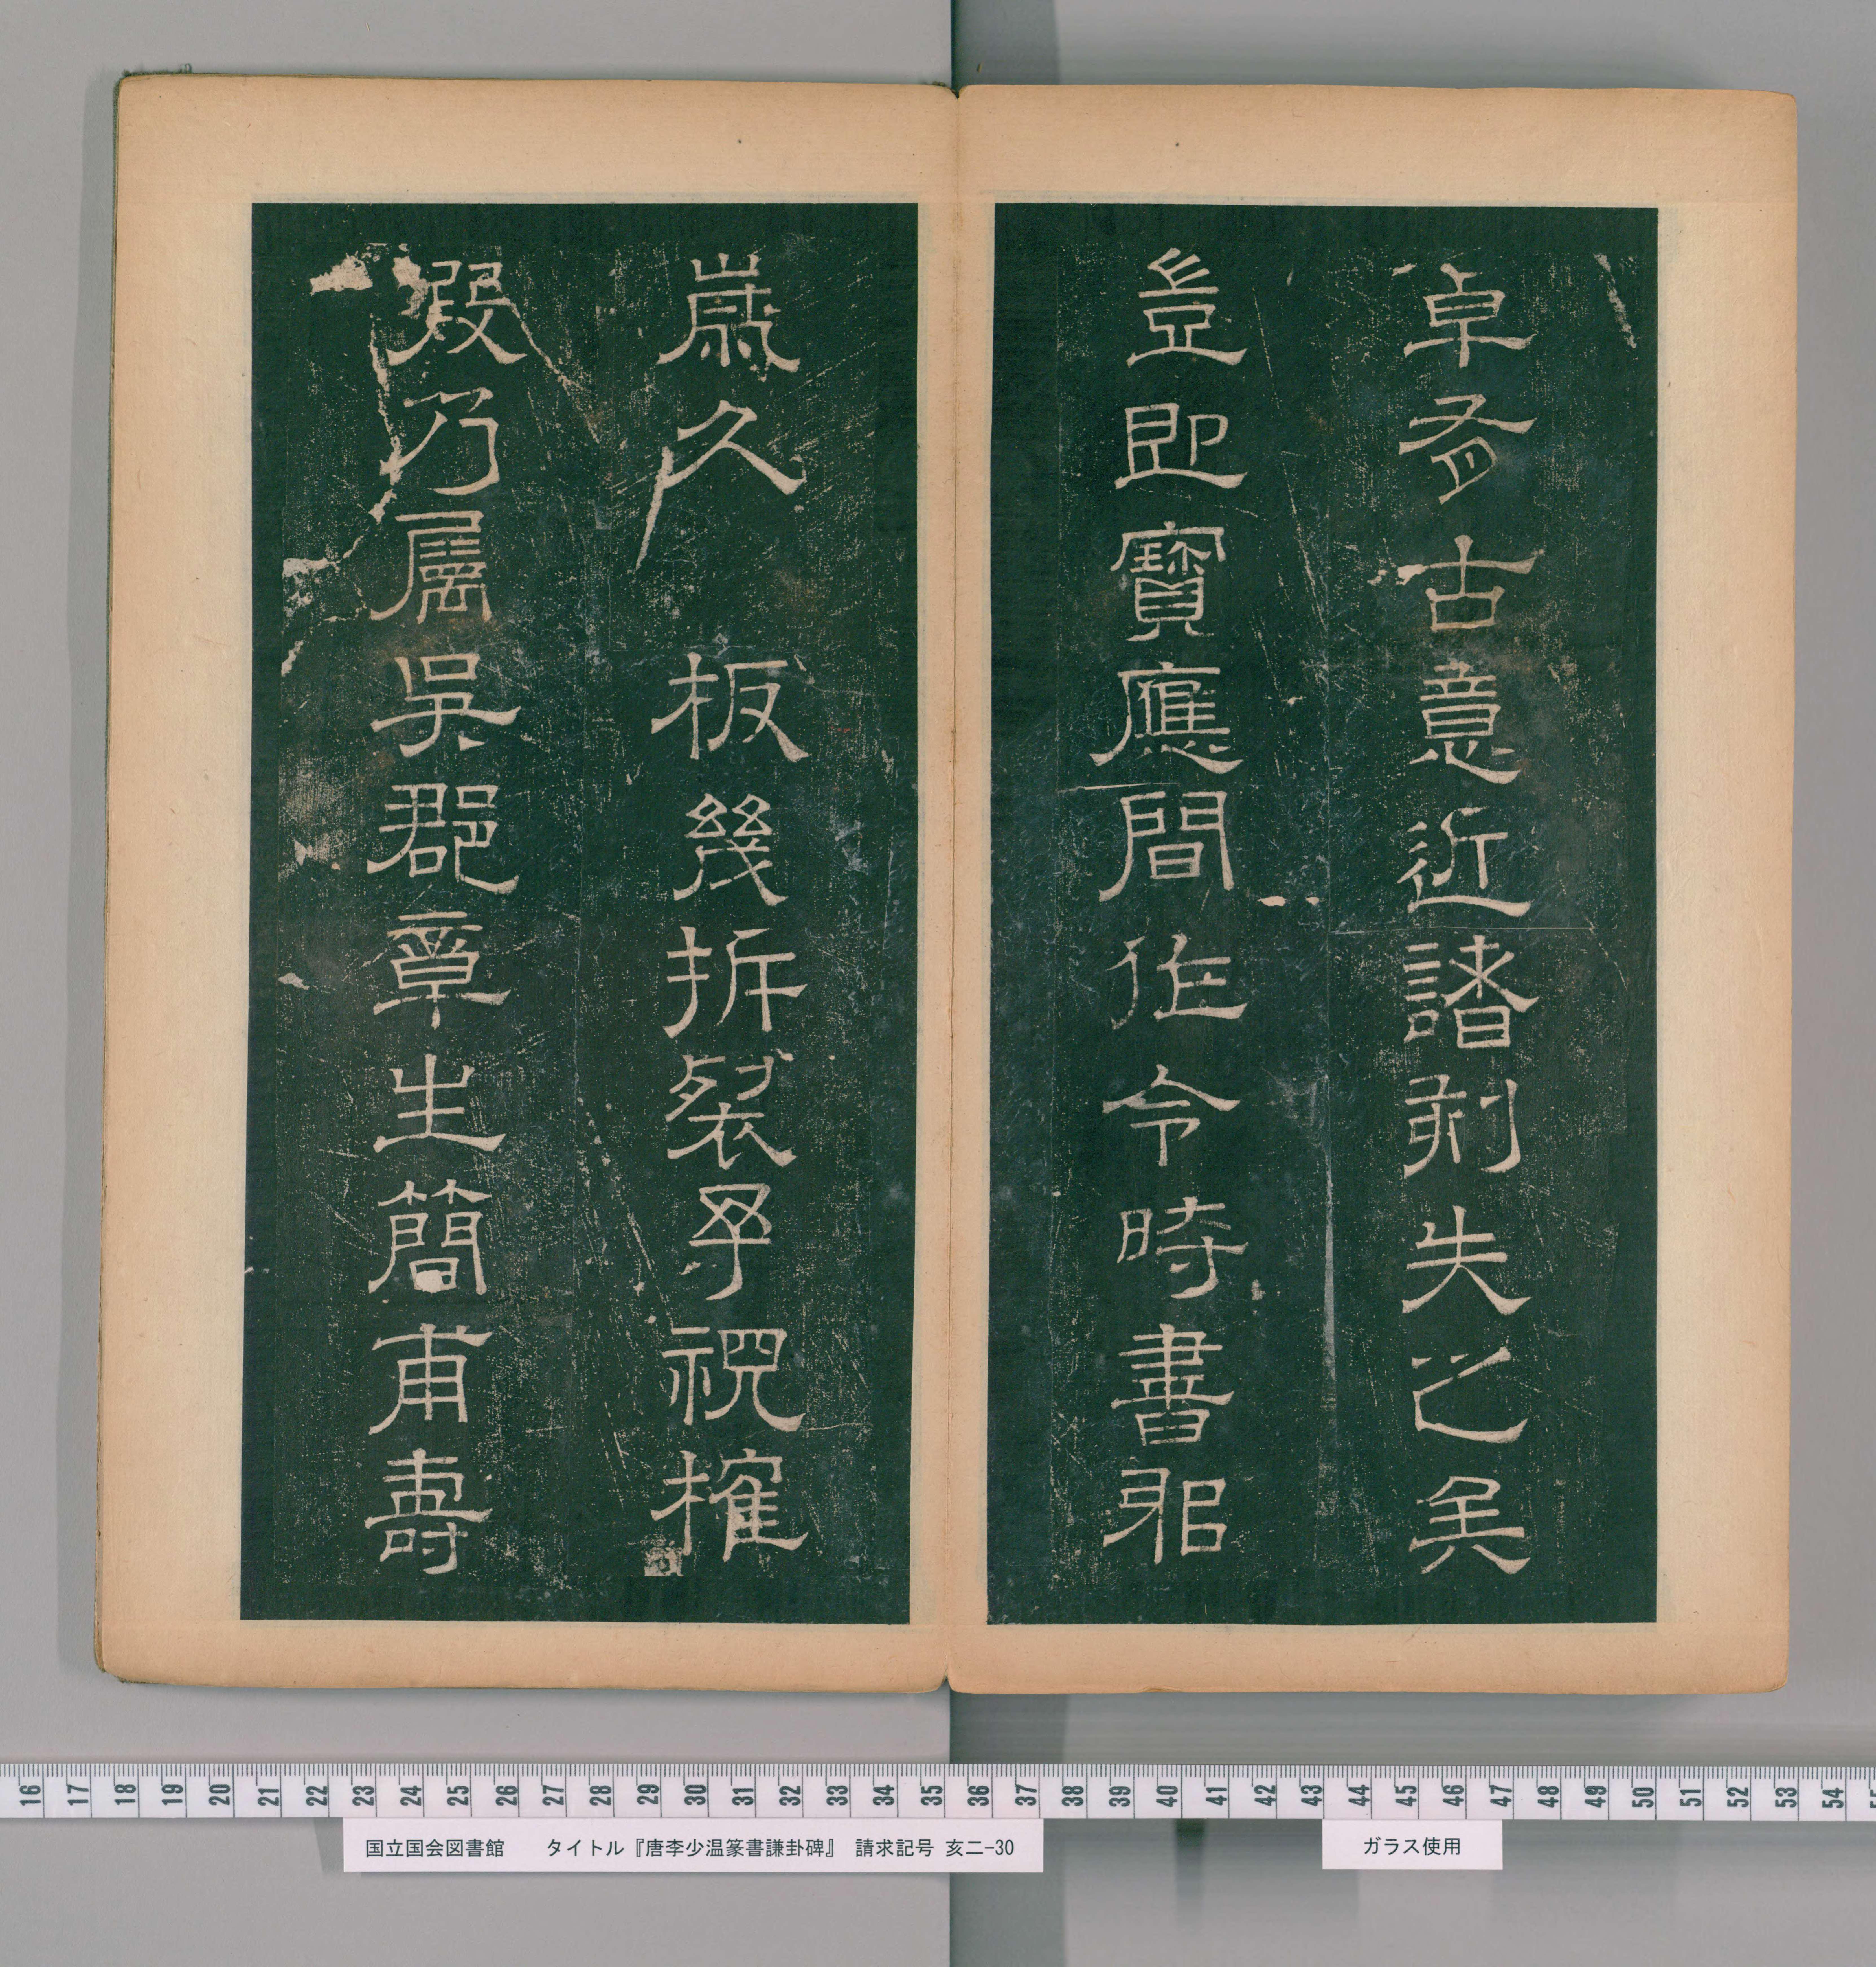 卓有古意近諸刻失之矣
豈即寶應間作令時書邪
歲久　板幾折裂予視搉
暇乃屬吳郡章生簡甫壽
16 17 18 19 20 21 22 23 24 25 26 27 28 29 30 31 32 33 34 35 36 37 38 39 40 41 42 43 44 45 46 47 48 49 50 51 52 53 54
国立国会図書館　タイトル『唐李少温篆書謙卦碑』　請求記号 亥二-30
ガラス使用